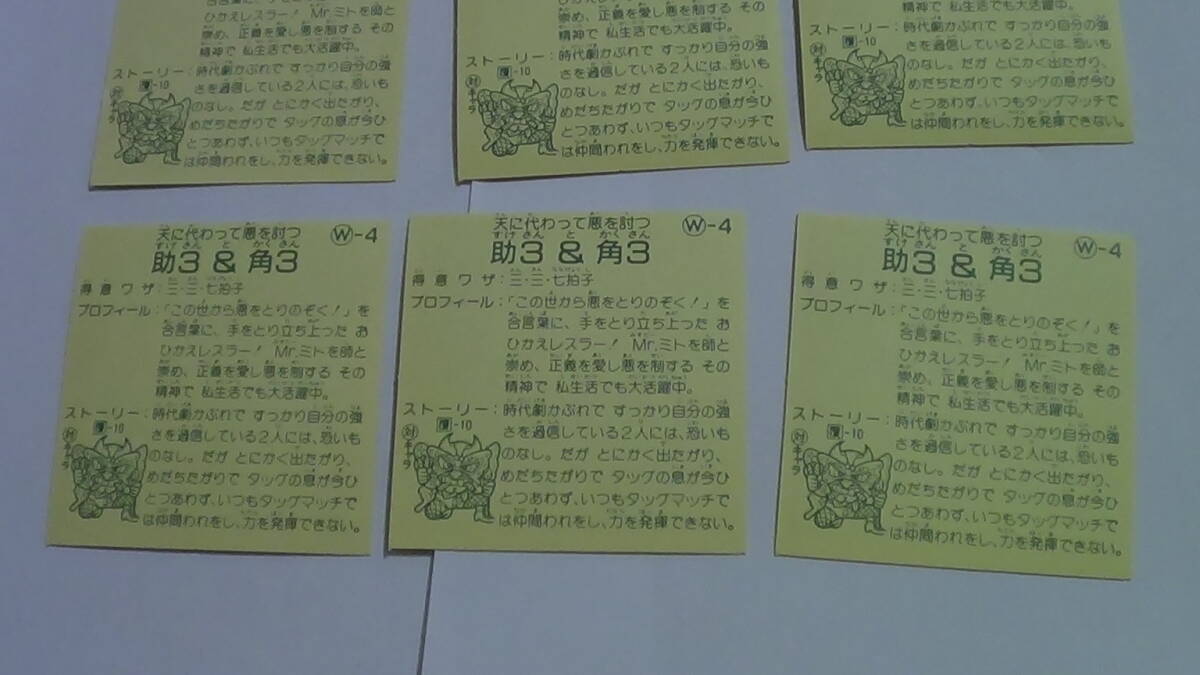 崇め、正義を愛し悪を制する その
精神で 私生活でも大活躍中。
ストーリー：時代劇かぶれで すっかり自分の強
さを過信している2人には、恐いも
のなし。だが とにかく出たがり、
めだちたがりで タッグの息が今ひ
とつあわず、いつもタッグマッチで
は仲間われをし、力を発揮できない。
対キャラ
覆-10
ひかえレスラー！ Mr.ミトを師と
崇め、正義を愛し悪を制する その
精神で 私生活でも大活躍中。
ストーリー：時代劇かぶれで すっかり自分の強
さを過信している2人には、恐いも
のなし。だが とにかく出たがり、
めだちたがりで タッグの息が今ひ
とつあわず、いつもタッグマッチで
は仲間われをし、力を発揮できない。
対キャラ
覆-10
精神で 私生活でも大活躍中。
ストーリー：時代劇かぶれで すっかり自分の強
さを過信している2人には、恐いも
のなし。だが とにかく出たがり、
めだちたがりで タッグの息が今ひ
とつあわず、いつもタッグマッチで
は仲間われをし、力を発揮できない。
対キャラ
覆-10
天に代わって悪を討つ
W-4
すけさん と かくさん
助3 & 角3
得意ワザ：三・三・七拍子
プロフィール：「この世から悪をとりのぞく！」を
合言葉に、手をとり立ち上った お
ひかえレスラー！ Mr.ミトを師と
崇め、正義を愛し悪を制する その
精神で 私生活でも大活躍中。
ストーリー：時代劇かぶれで すっかり自分の強
さを過信している2人には、恐いも
のなし。だが とにかく出たがり、
めだちたがりで タッグの息が今ひ
とつあわず、いつもタッグマッチで
は仲間われをし、力を発揮できない。
対キャラ
覆-10
天に代わって悪を討つ
W-4
すけさん と かくさん
助3 & 角3
得意ワザ：三・三・七拍子
プロフィール：「この世から悪をとりのぞく！」を
合言葉に、手をとり立ち上った お
ひかえレスラー！ Mr.ミトを師と
崇め、正義を愛し悪を制する その
精神で 私生活でも大活躍中。
ストーリー：時代劇かぶれで すっかり自分の強
さを過信している2人には、恐いも
のなし。だが とにかく出たがり、
めだちたがりで タッグの息が今ひ
とつあわず、いつもタッグマッチで
は仲間われをし、力を発揮できない。
対キャラ
覆-10
天に代わって悪を討つ
W-4
すけさん と かくさん
助3 & 角3
得意ワザ：三・三・七拍子
プロフィール：「この世から悪をとりのぞく！」を
合言葉に、手をとり立ち上った お
ひかえレスラー！ Mr.ミトを師と
崇め、正義を愛し悪を制する その
精神で 私生活でも大活躍中。
ストーリー：時代劇かぶれで すっかり自分の強
さを過信している2人には、恐いも
のなし。だが とにかく出たがり、
めだちたがりで タッグの息が今ひ
とつあわず、いつもタッグマッチで
は仲間われをし、力を発揮できない。
対キャラ
覆-10